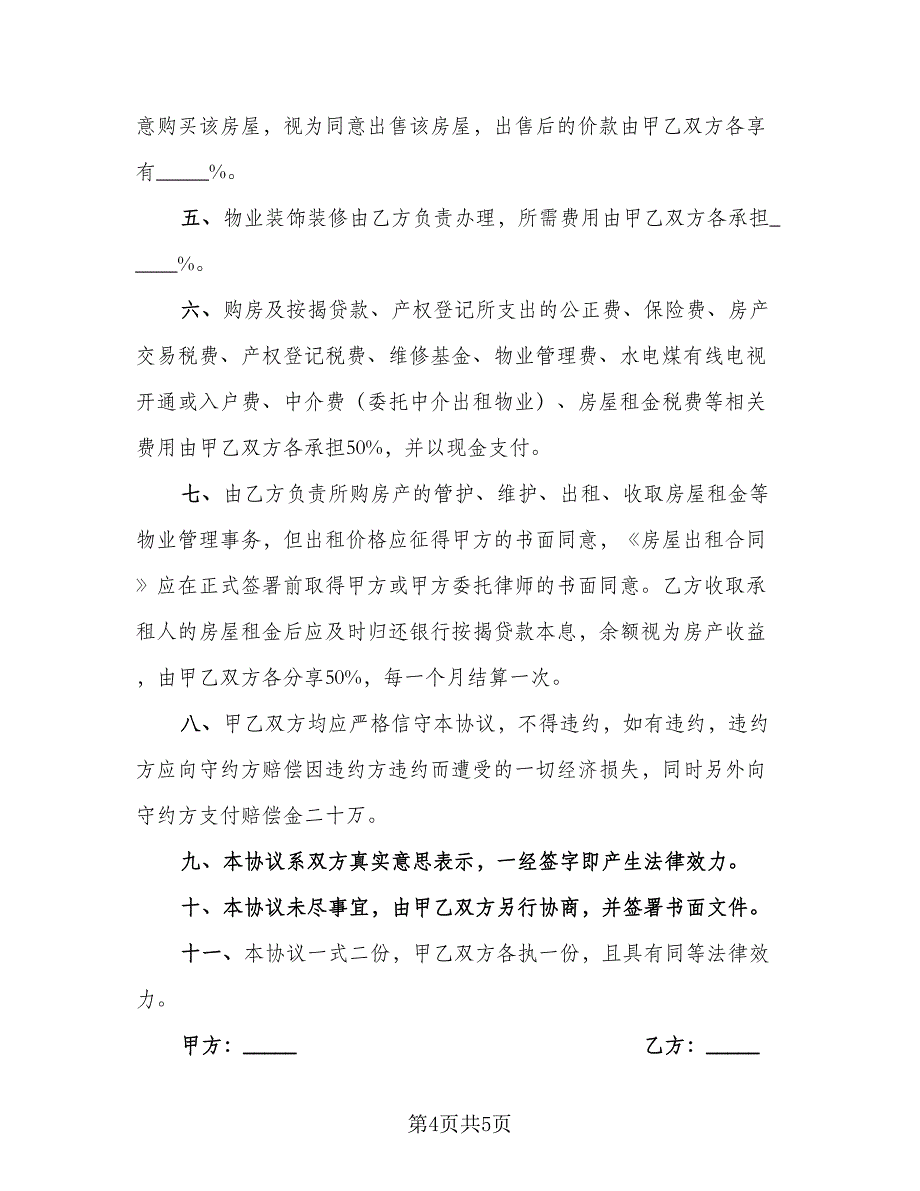 意购买该房屋，视为同意出售该房屋，出售后的价款由甲乙双方各享
有_____%。
五、物业装饰装修由乙方负责办理，所需费用由甲乙双方各承担_
____%。
六、购房及按揭贷款、产权登记所支出的公正费、保险费、房产
交易税费、产权登记税费、维修基金、物业管理费、水电煤有线电视
开通或入户费、中介费（委托中介出租物业）、房屋租金税费等相关
费用由甲乙双方各承担50%，并以现金支付。
七、由乙方负责所购房产的管护、维护、出租、收取房屋租金等
物业管理事务，但出租价格应征得甲方的书面同意，《房屋出租合同
》应在正式签署前取得甲方或甲方委托律师的书面同意。乙方收取承
租人的房屋租金后应及时归还银行按揭贷款本息，余额视为房产收益
，由甲乙双方各分享50%，每一个月结算一次。
八、甲乙双方均应严格信守本协议，不得违约，如有违约，违约
方应向守约方赔偿因违约方违约而遭受的一切经济损失，同时另外向
守约方支付赔偿金二十万。
九、本协议系双方真实意思表示，一经签字即产生法律效力。
十、本协议未尽事宜，由甲乙双方另行协商，并签署书面文件。
十一、本协议一式二份，甲乙双方各执一份，且具有同等法律效
力。
甲方：_____ 乙方：_____
第4页共5页